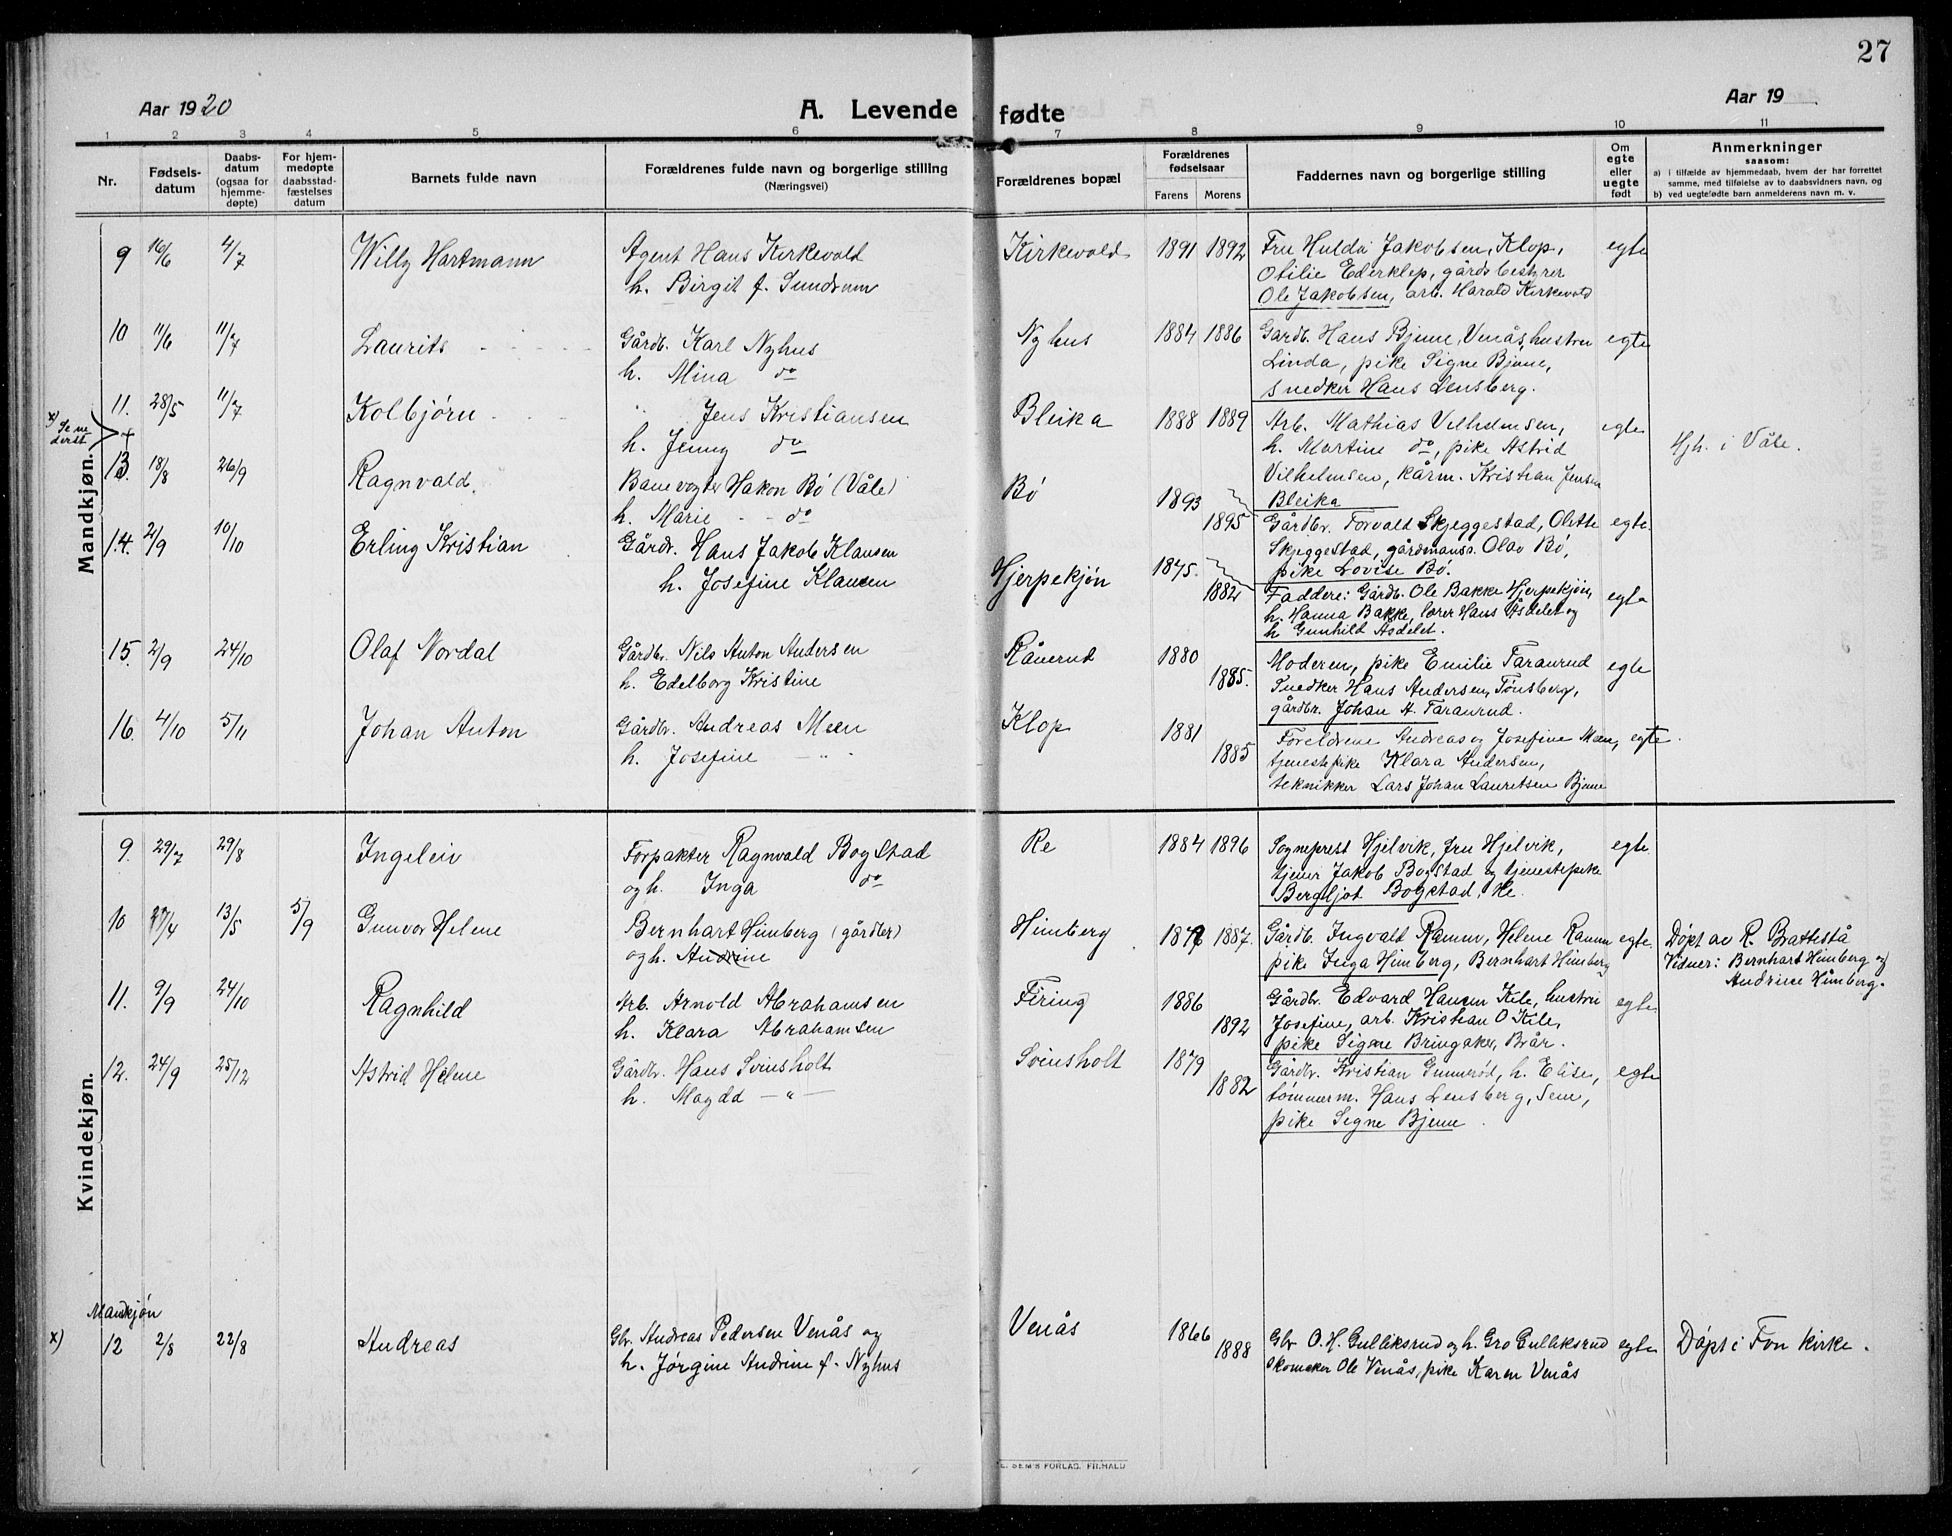 27
Aar 1920
A. Levende fødte
Aar 19
1 2 3 4 5 6 7 8 9 10 11
Nr.
Fødsels-
datum
Daabs-
datum
(ogsaa for
hjemme-
døpte)
For hjem-
medøpte
daabsstad-
fæstelses
datum
Barnets fulde navn
Forældrenes fulde navn og borgerlige stilling
(Næringsvei)
Forældrenes bopæl
Forældrenes
fødselsaar
Farens Morens
Faddernes navn og borgerlige stilling
Om
egte
eller
uegte
født
Anmerkninger
saasom:
a) i tilfælde av hjemmedaab, hvem der har forrettet
samme, med tilføielse av to daabsvidners navn, og
b) ved uegtefødte barn anmelderens navn m. v.
Mandkjøn.
9 16/6 4/7 Willy Hartmann Agent Hans Kirkevold Kirkevold 1891 1892 Fru Hulda Jakobsen, Klop, egte
h. Birgit f. Sundrum Otilie Ederklep, gårdsbestyrer
Ole Jakobsen, arb. Harald Kirkevold
10 11/6 11/7 Laurits Gårdb. Karl Nyhus Nyhus 1884 1886 Gardb. Hans Bjune, Venås, hustru egte
h. Mina do Linda, pike Signe Bjune,
snedker Hans Lensberg.
x) Se nederst
11. 28/5 11/7 Kolbjørn " Jens Kristiansen Bleika 1888 1889 Arb. Mathias Vilhelmsen, egte
h. Jenny do h. Martine do, pike Astrid Hjh. i Våle.
Vilhelmsen, kårm. Kristian Jensen
Bleika
13. 18/8 26/9 Ragnvald Banevogter Hakon Bø (Våle) Bø 1893 1895
h. Marie do Gårdbr. Torvald Skjeggestad, Olette egte
Skjeggestad, gårdmanss. Olav Bø,
pike Lovise Bø.
14. 2/9 10/10 Erling Kristian Gårdb. Hans Jakob Klausen Hjerpekjøn 1875. 1882
h. Josefine Klausen Faddere: Gårdb. Ole Bakke Hjerpekjøn, egte
h. Hanna Bakke, lærer Hans Åsdelet og
h Gunhild Asdelet.
15. 2/9 24/10 Olaf Nordal Gårdbr. Nils Anton Andersen Rånerud 1880 1885.
h. Edelborg Kristine Moderen, pike Emilie Taranrud egte
Snedker Hans Andersen, Tønsberg,
gårdbr. Johan A. Taranrud.
16. 4/10 5/11 Johan Anton Gårdbr. Andreas Meen Klop 1881 1885
h. Josefine " Foreldrene Andreas og Josefine Meen, egte.
tjenestepike Klara Andersen,
teknikker Lars Johan Lauritsen Bjune
Kvindekjøn.
9. 29/7 29/8 Ingeleiv Forpakter Ragnvald Bogstad Re 1884 1896 Sogneprest Hjelvik, fru Hjelvik, egte.
og h. Inga do tjener Jakob Bogstad og tjenestepike
Bergljot Bogstad, Re.
10 /4 13/5 5/9 Gunvor Helene Bernhart Himberg (gårdbr) Himberg 1887. Gårdb. Ingvald Ramm, Helene Ramm egte. Døpt av R. Brattistå
og h. Andrine pike Inga Himberg, Bernhart Himberg Vidner: Bernhart Himberg og
Andrine Himberg.
11. 9/9 24/10 Ragnhild Arb. Arnold Abrahamsen Firing 1886 1892 Gårdbr. Edvard Hansen Kile, hustru egte
h. Klara Abrahamsen Josefine, arb. Kristian O Kile,
pike Signe Bringaker, Brår.
12. 24/9 25/12 Astrid Helene Gårdbr. Hans Svinsholt Svinsholt 1879 1882 Gårdbr. Kristian Gunnerød, h. Elise, egte
h. Magda " tømmerm. Hans Lensberg, Sem,
pike Signe Bjune.
Mandkjøn
x) 12 2/8 22/8 Andreas Gbr. Andreas Pedersen Venås og Venås 1866 1888 Gbr O. H. Gulliksrud og h. Gro Gulliksrud egte Døpt i Fon kirke.
h. Jørgine Andrine f. Nyhus Skomaker Ole Venås, pike Karen Venås
E. SEM'S FORLAG, FR.HALD